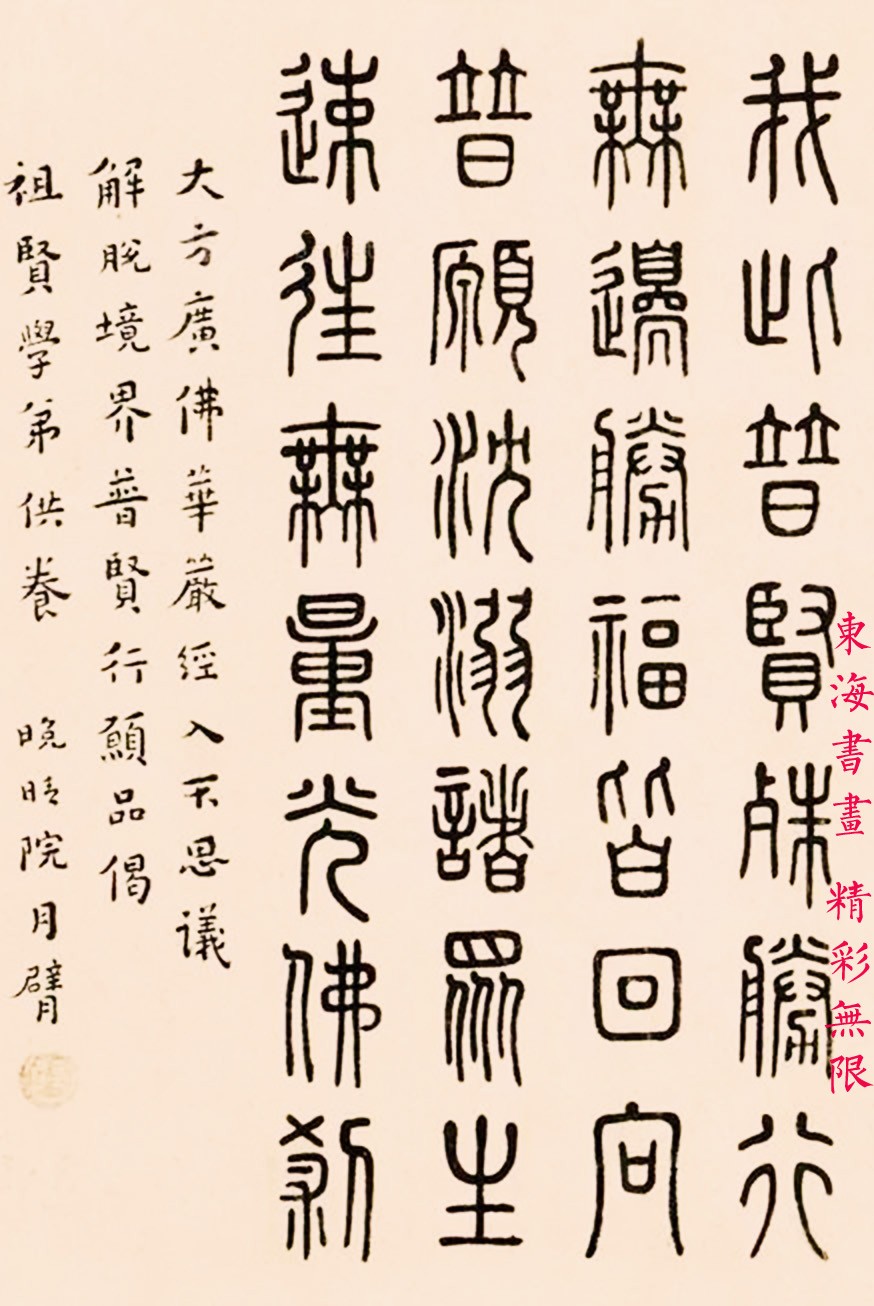 我此普賢殊勝行
無邊勝福皆回向
普願沈溺諸眾生
速往無量光佛剎
大方廣佛華嚴經入不思議
解脫境界普賢行願品偈
祖賢學弟供養 晚晴院月臂
東海書畫 精彩無限